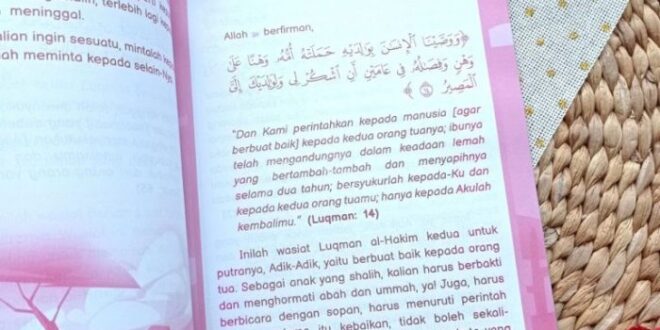 terlebih lagi
meninggal.
lian ingin sesuatu, mintalah
ah meminta kepada selain-Nya
Allah ﷻ berfirman,
﴿وَوَصَّيْنَا الْإِنسَٰنَ بِوَٰلِدَيْهِ حَمَلَتْهُ أُمُّهُۥ وَهْنًا عَلَىٰ
وَهْنٍ وَفِصَٰلُهُۥ فِى عَامَيْنِ أَنِ ٱشْكُرْ لِى وَلِوَٰلِدَيْكَ إِلَىَّ
ٱلْمَصِيرُ ١٤﴾
"Dan Kami perintahkan kepada manusia [agar
berbuat baik] kepada kedua orang tuanya; ibunya
telah mengandungnya dalam keadaan lemah
yang bertambah-tambah dan menyapihnya
selama dua tahun; bersyukurlah kepada-Ku dan
kepada kedua orang tuamu; hanya kepada Akulah
kembalimu." (Luqman: 14)
Inilah wasiat Luqman al-Hakim kedua untuk
putranya, Adik-Adik, yaitu berbuat baik kepada orang
tua. Sebagai anak yang shalih, kalian harus berbakti
dan menghormati abah dan ummah, ya! Juga, harus
berbicara dengan sopan, harus menuruti perintah
itu kebaikan, tidak boleh sekali-